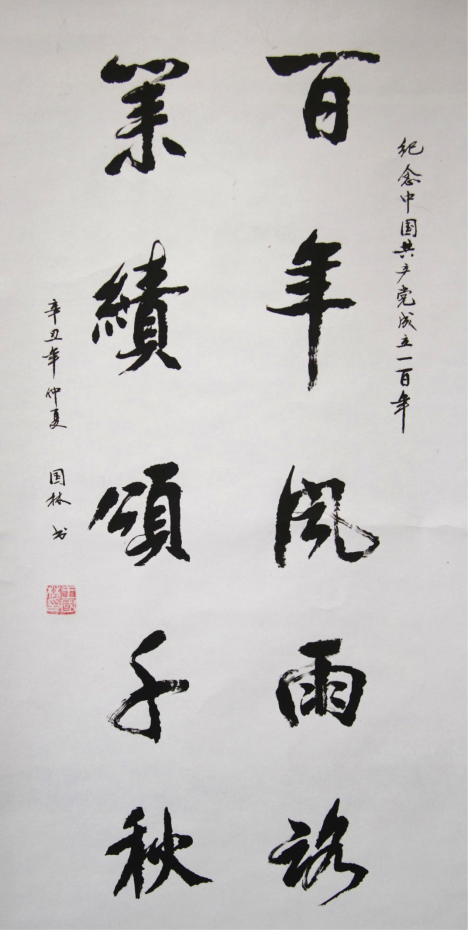 纪念中国共产党成立一百年
百年风雨路
業績頌千秋
辛丑年仲夏 国林书